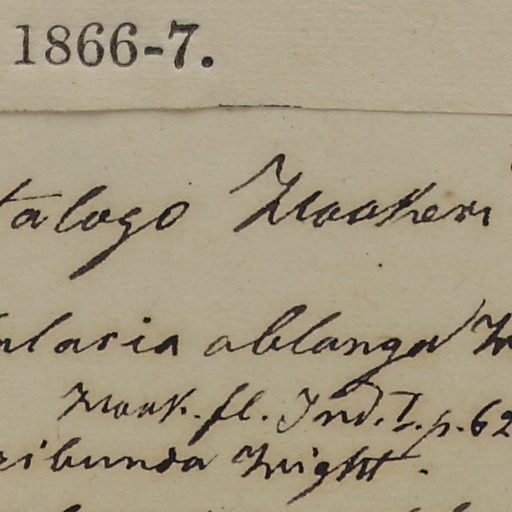 1866-7.
talogo Hookeri
ularia oblanga W
Hook. fl. Ind. I. p. 62
ribunda Wight.